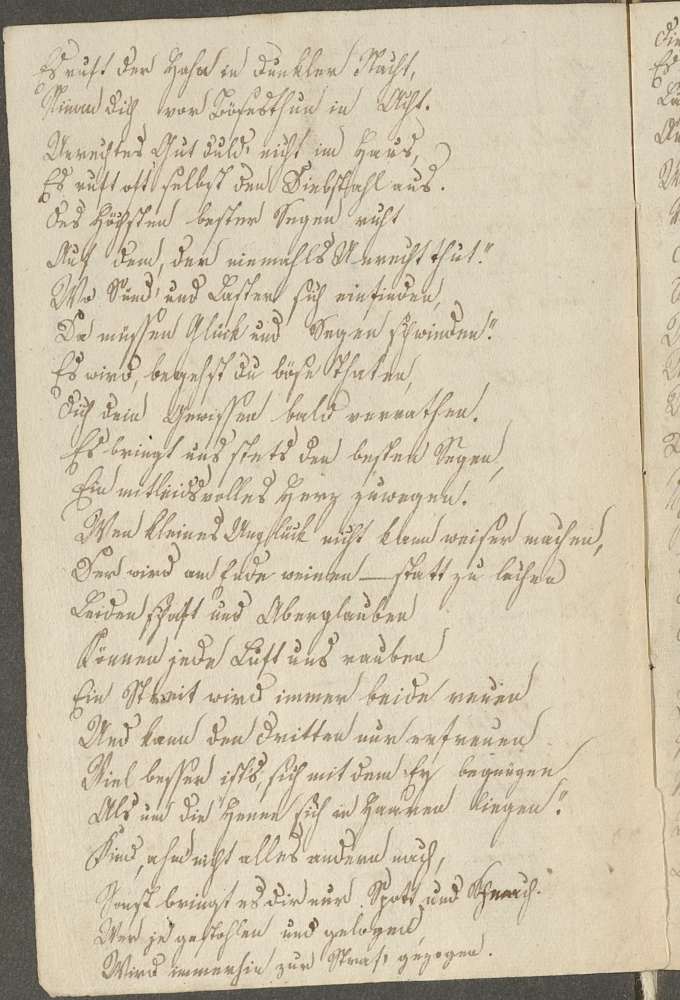 Es ruft der Hahn in dunkler Nacht,
Nimm dich vor Bösesthun in Acht.
Unrechtes Gut duld' nicht im Haus,
Es ruft oft selbst den Diebstahl aus.
Des Höchsten bester Segen ruht
Auf dem, der niemahls Unrecht thut."
Wo Sünd' und Laster sich einfinden,
Da müssen Glück und Segen schwinden."
Es wird, begehst du böse Thaten,
Dich dein Gewissen bald verrathen.
Es bringt uns stets den besten Segen,
Ein mitleidsvolles Herz zuwegen.
Wen kleines Unglück nicht kann weiser machen,
Der wird am Ende weinen — statt zu lachen
Leidenschaft und Aberglauben
Können jede Lust uns rauben
Ein Streit wird immer beide reuen
Und kann den Dritten nur erfreuen
Viel besser ist's, sich mit dem Ey begnügen
Als um die Henne sich in Haaren liegen."
Kind, ahm nicht alles andern nach,
Sonst bringt es dir nur Spott und Schmach.
Wer je gestohlen und gelogen,
Wird immerhin zur Straf' gezogen.